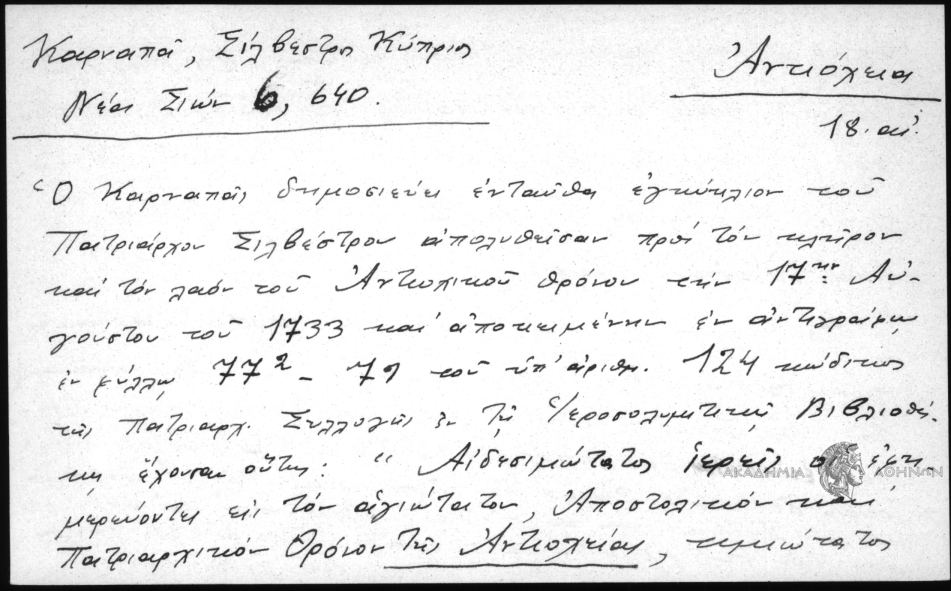 Καρναπᾶ, Σίλβεστρος Κύπριος
Νέα Σιών 6, 640.
Ἀντιόχεια
18. αἰ.
Ὁ Καρναπᾶς δημοσιεύει ἐνταῦθα ἐγκύκλιον τοῦ
Πατριάρχου Σιλβέστρου ἀπολυθεῖσαν πρὸς τὸν κλῆρον
καὶ τὸν λαὸν τοῦ Ἀντιοχικοῦ θρόνου τὴν 17ην Αὐ-
γούστου τοῦ 1733 καὶ ἀποκειμένην ἐν ἀντιγράφῳ
ἐν φύλλῳ 77² - 79 τοῦ ὑπ' ἀριθμ. 124 κώδικος
τῆς Πατριαρχ. Συλλογῆς ἐν τῇ Ἱεροσολυμιτικῇ Βιβλιοθή-
κῃ ἔχουσαν οὕτω: "Αἰδεσιμώτατοι ἱερεῖς οἱ ἐφη-
μερεύοντες εἰς τὸν ἁγιώτατον, Ἀποστολικὸν καὶ
Πατριαρχικὸν Θρόνον τῆς Ἀντιοχείας, τιμιώτατοι
ΑΚΑΔΗΜΙΑ ΑΘΗΝΩΝ